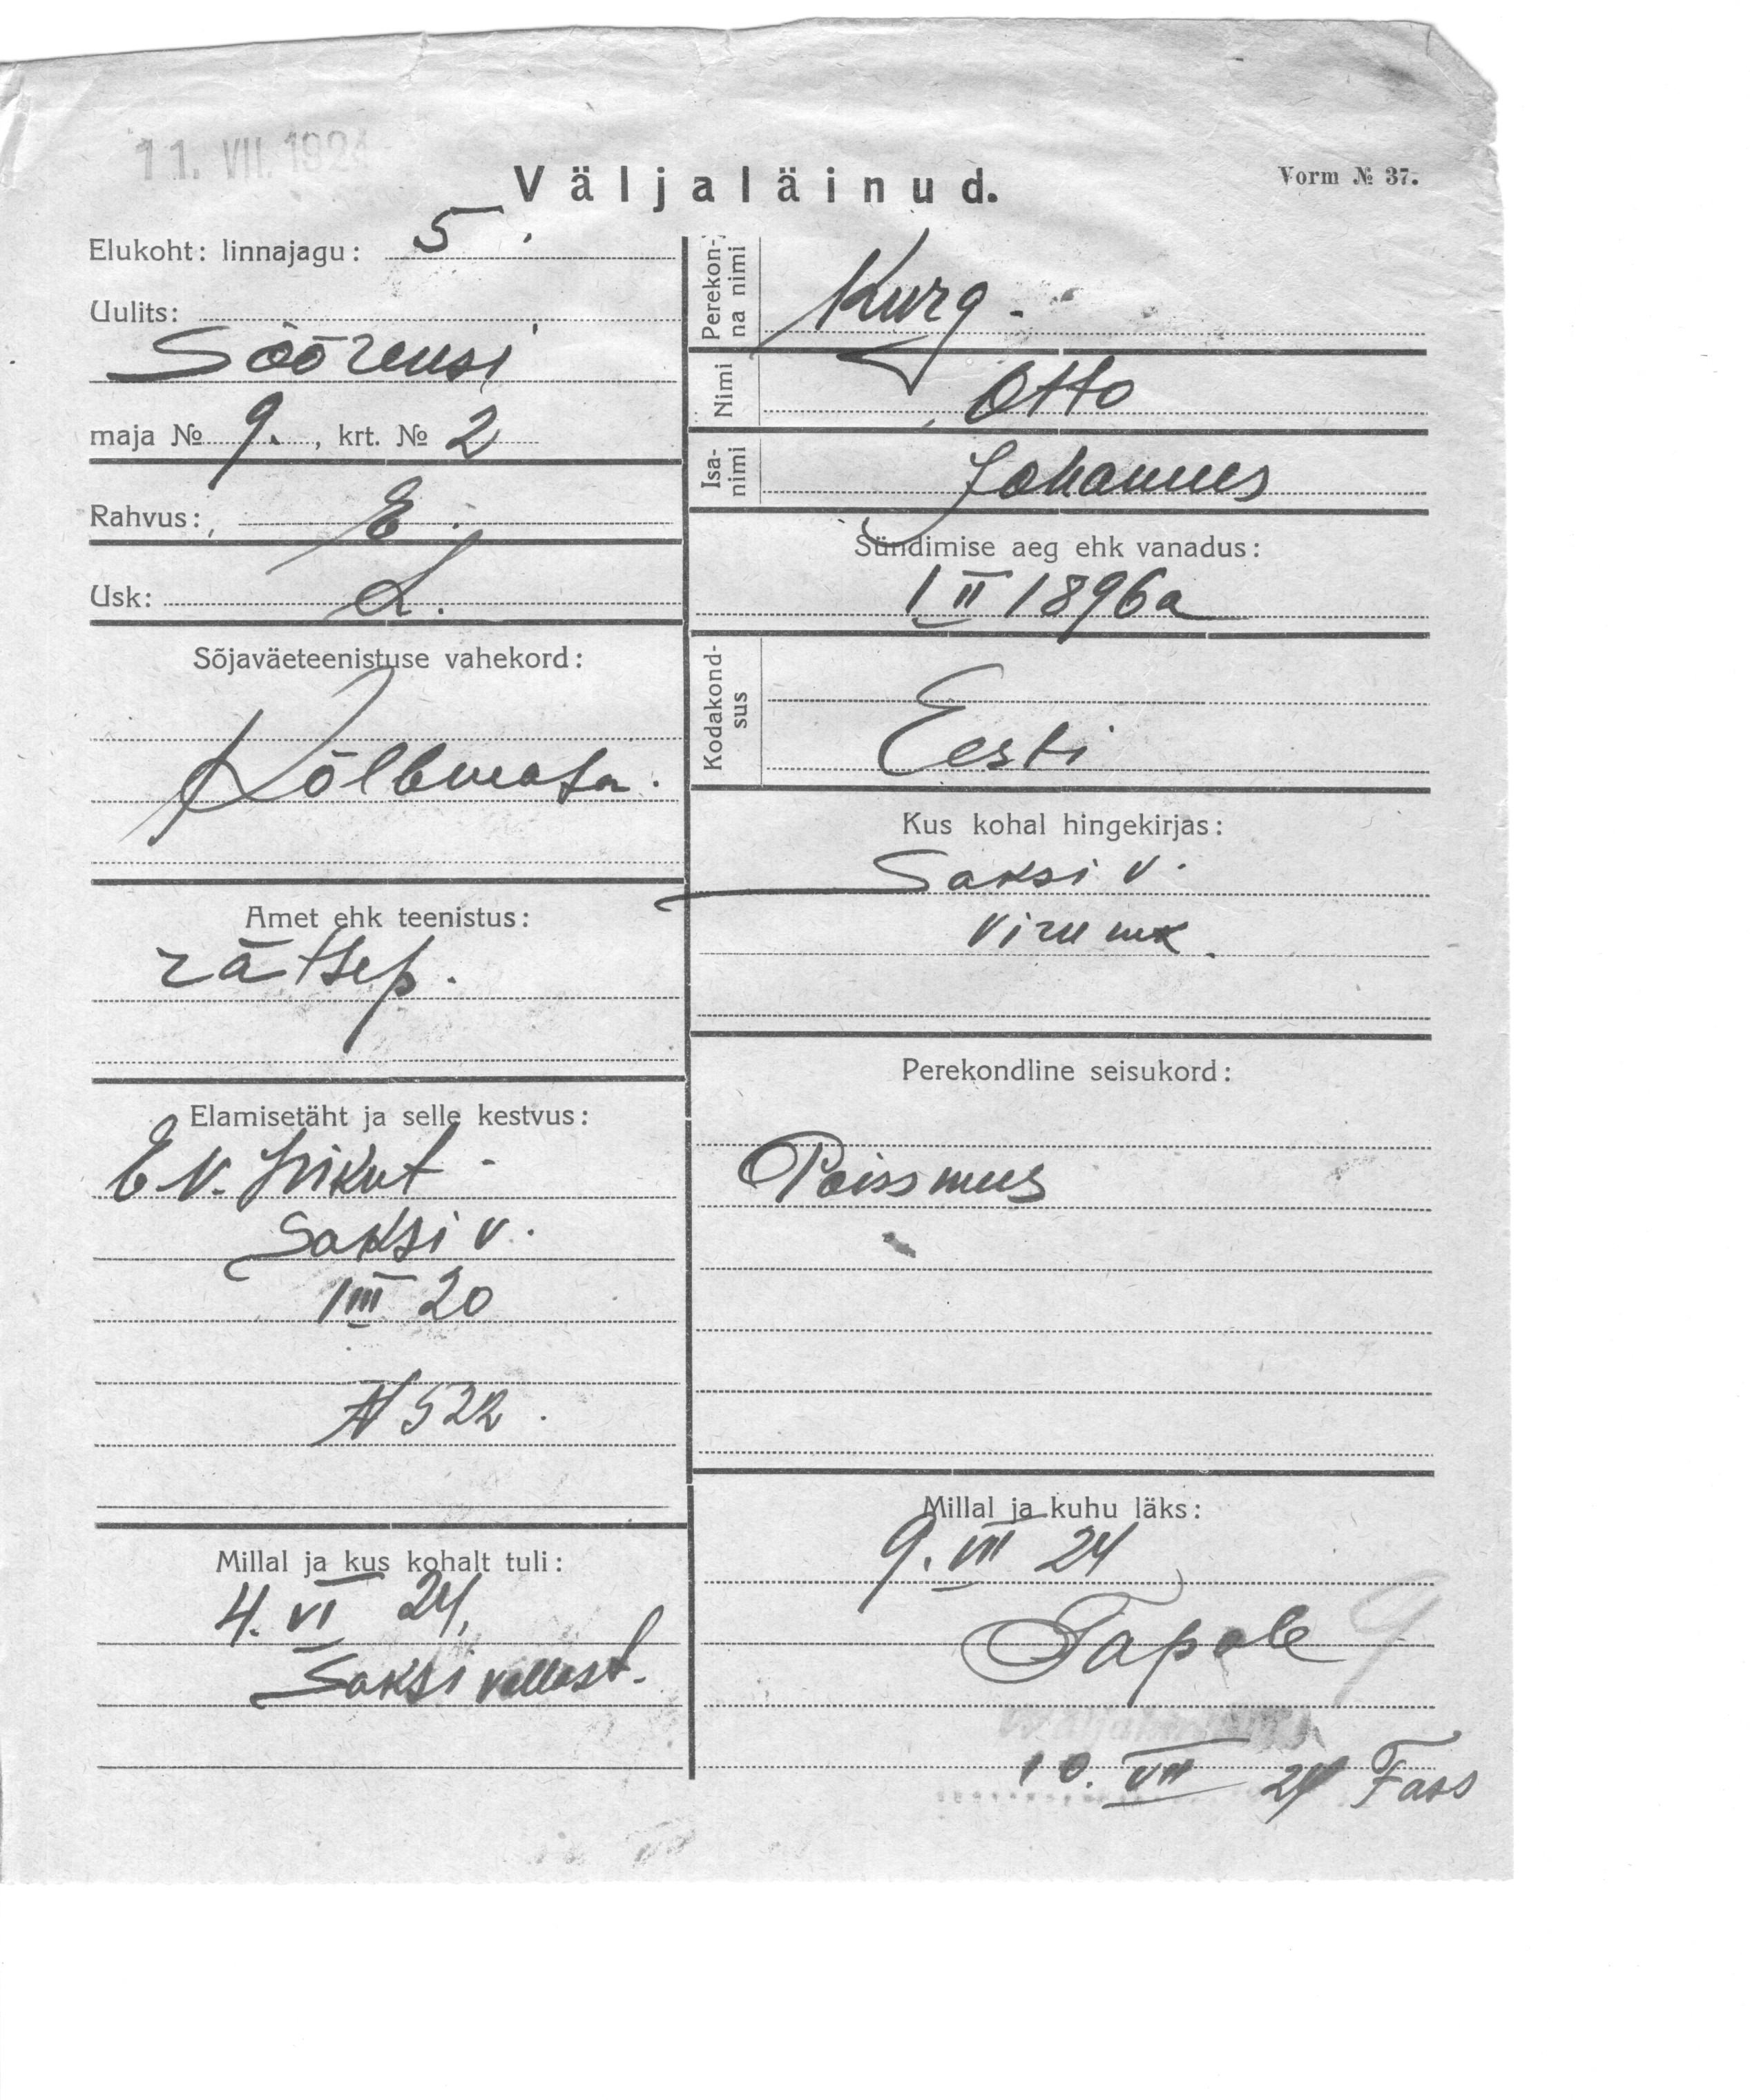 11. VII. 1924
Väljaläinud.
Vorm № 37.
Elukoht: linnajagu: 5.
Uulits:
Söörensi
maja № 9., krt. № 2
Rahvus: E.
Usk: L.
Sõjaväeteenistuse vahekord:
Kõlbmata.
Amet ehk teenistus:
rätsep.
Elamisetäht ja selle kestvus:
E.V. isikut
Saksi v.
1 III 20
№ 522.
Millal ja kus kohalt tuli:
4. VI 24.
Saksi vallast.
Perekon-
na nimi
Kurg.
Nimi
Otto
Isa-
nimi
Johannes
Sündimise aeg ehk vanadus:
1 II 1896a
Kodakond-
sus
Eesti
Kus kohal hingekirjas:
Saksi v.
Viru mk.
Perekondline seisukord:
Poissmees
Millal ja kuhu läks:
9. VII 24
Tapale 9
10. VII 24